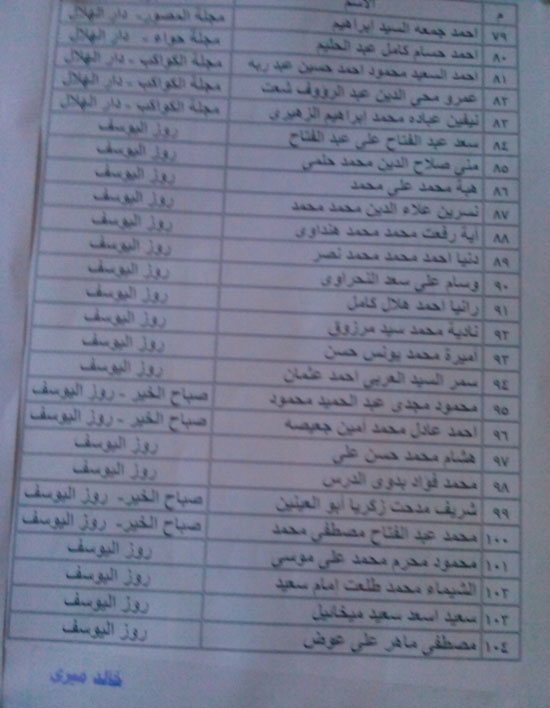 م الاسم
٧٩ احمد جمعه السيد ابراهيم مجلة المصور- دار الهلال
٨٠ احمد حسام كامل عبد الحليم مجلة حواء - دار الهلال
٨١ احمد السعيد محمود احمد حسين عبد ربه مجلة الكواكب - دار الهلال
٨٢ عمرو محي الدين عبد الرؤوف مجلة الكواكب - دار الهلال
٨٣ نيفين عباده محمد ابراهيم الزهيرى مجلة الكواكب - دار الهلال
٨٤ سعد عبد الفتاح على عبد الفتاح روز اليوسف
٨٥ منى صلاح الدين محمد حلمى روز اليوسف
٨٦ هبة محمد على محمد روز اليوسف
٨٧ نسرين علاء الدين محمد محمد روز اليوسف
٨٨ اية رفعت محمد محمد هنداوى روز اليوسف
٨٩ دنيا احمد محمد محمد نصر روز اليوسف
٩٠ وسام على سعد النحراوى روز اليوسف
٩١ رانيا احمد هلال كامل روز اليوسف
٩٢ نادية محمد سيد مرزوق روز اليوسف
٩٣ اميرة محمد يونس حسن روز اليوسف
٩٤ سمر السيد العربي احمد عثمان روز اليوسف
٩٥ محمود مجدى عبد الحميد محمود صباح الخير - روز اليوسف
٩٦ احمد عادل محمد امين جعيصه صباح الخير - روز اليوسف
٩٧ هشام محمد حسن على روز اليوسف
٩٨ محمد فواد بدوى الدرس روز اليوسف
٩٩ شريف مدحت زكريا أبو العينين صباح الخير- روز اليوسف
١٠٠ محمد عبد الفتاح مصطفي محمد صباح الخير- روز اليوسف
١٠١ محمود محرم محمد على موسي روز اليوسف
١٠٢ الشيماء محمد طلعت امام سعيد روز اليوسف
١٠٣ سعيد اسعد سعيد ميخائيل روز اليوسف
١٠٤ مصطفي ماهر على عوض روز اليوسف
خالد ميرى